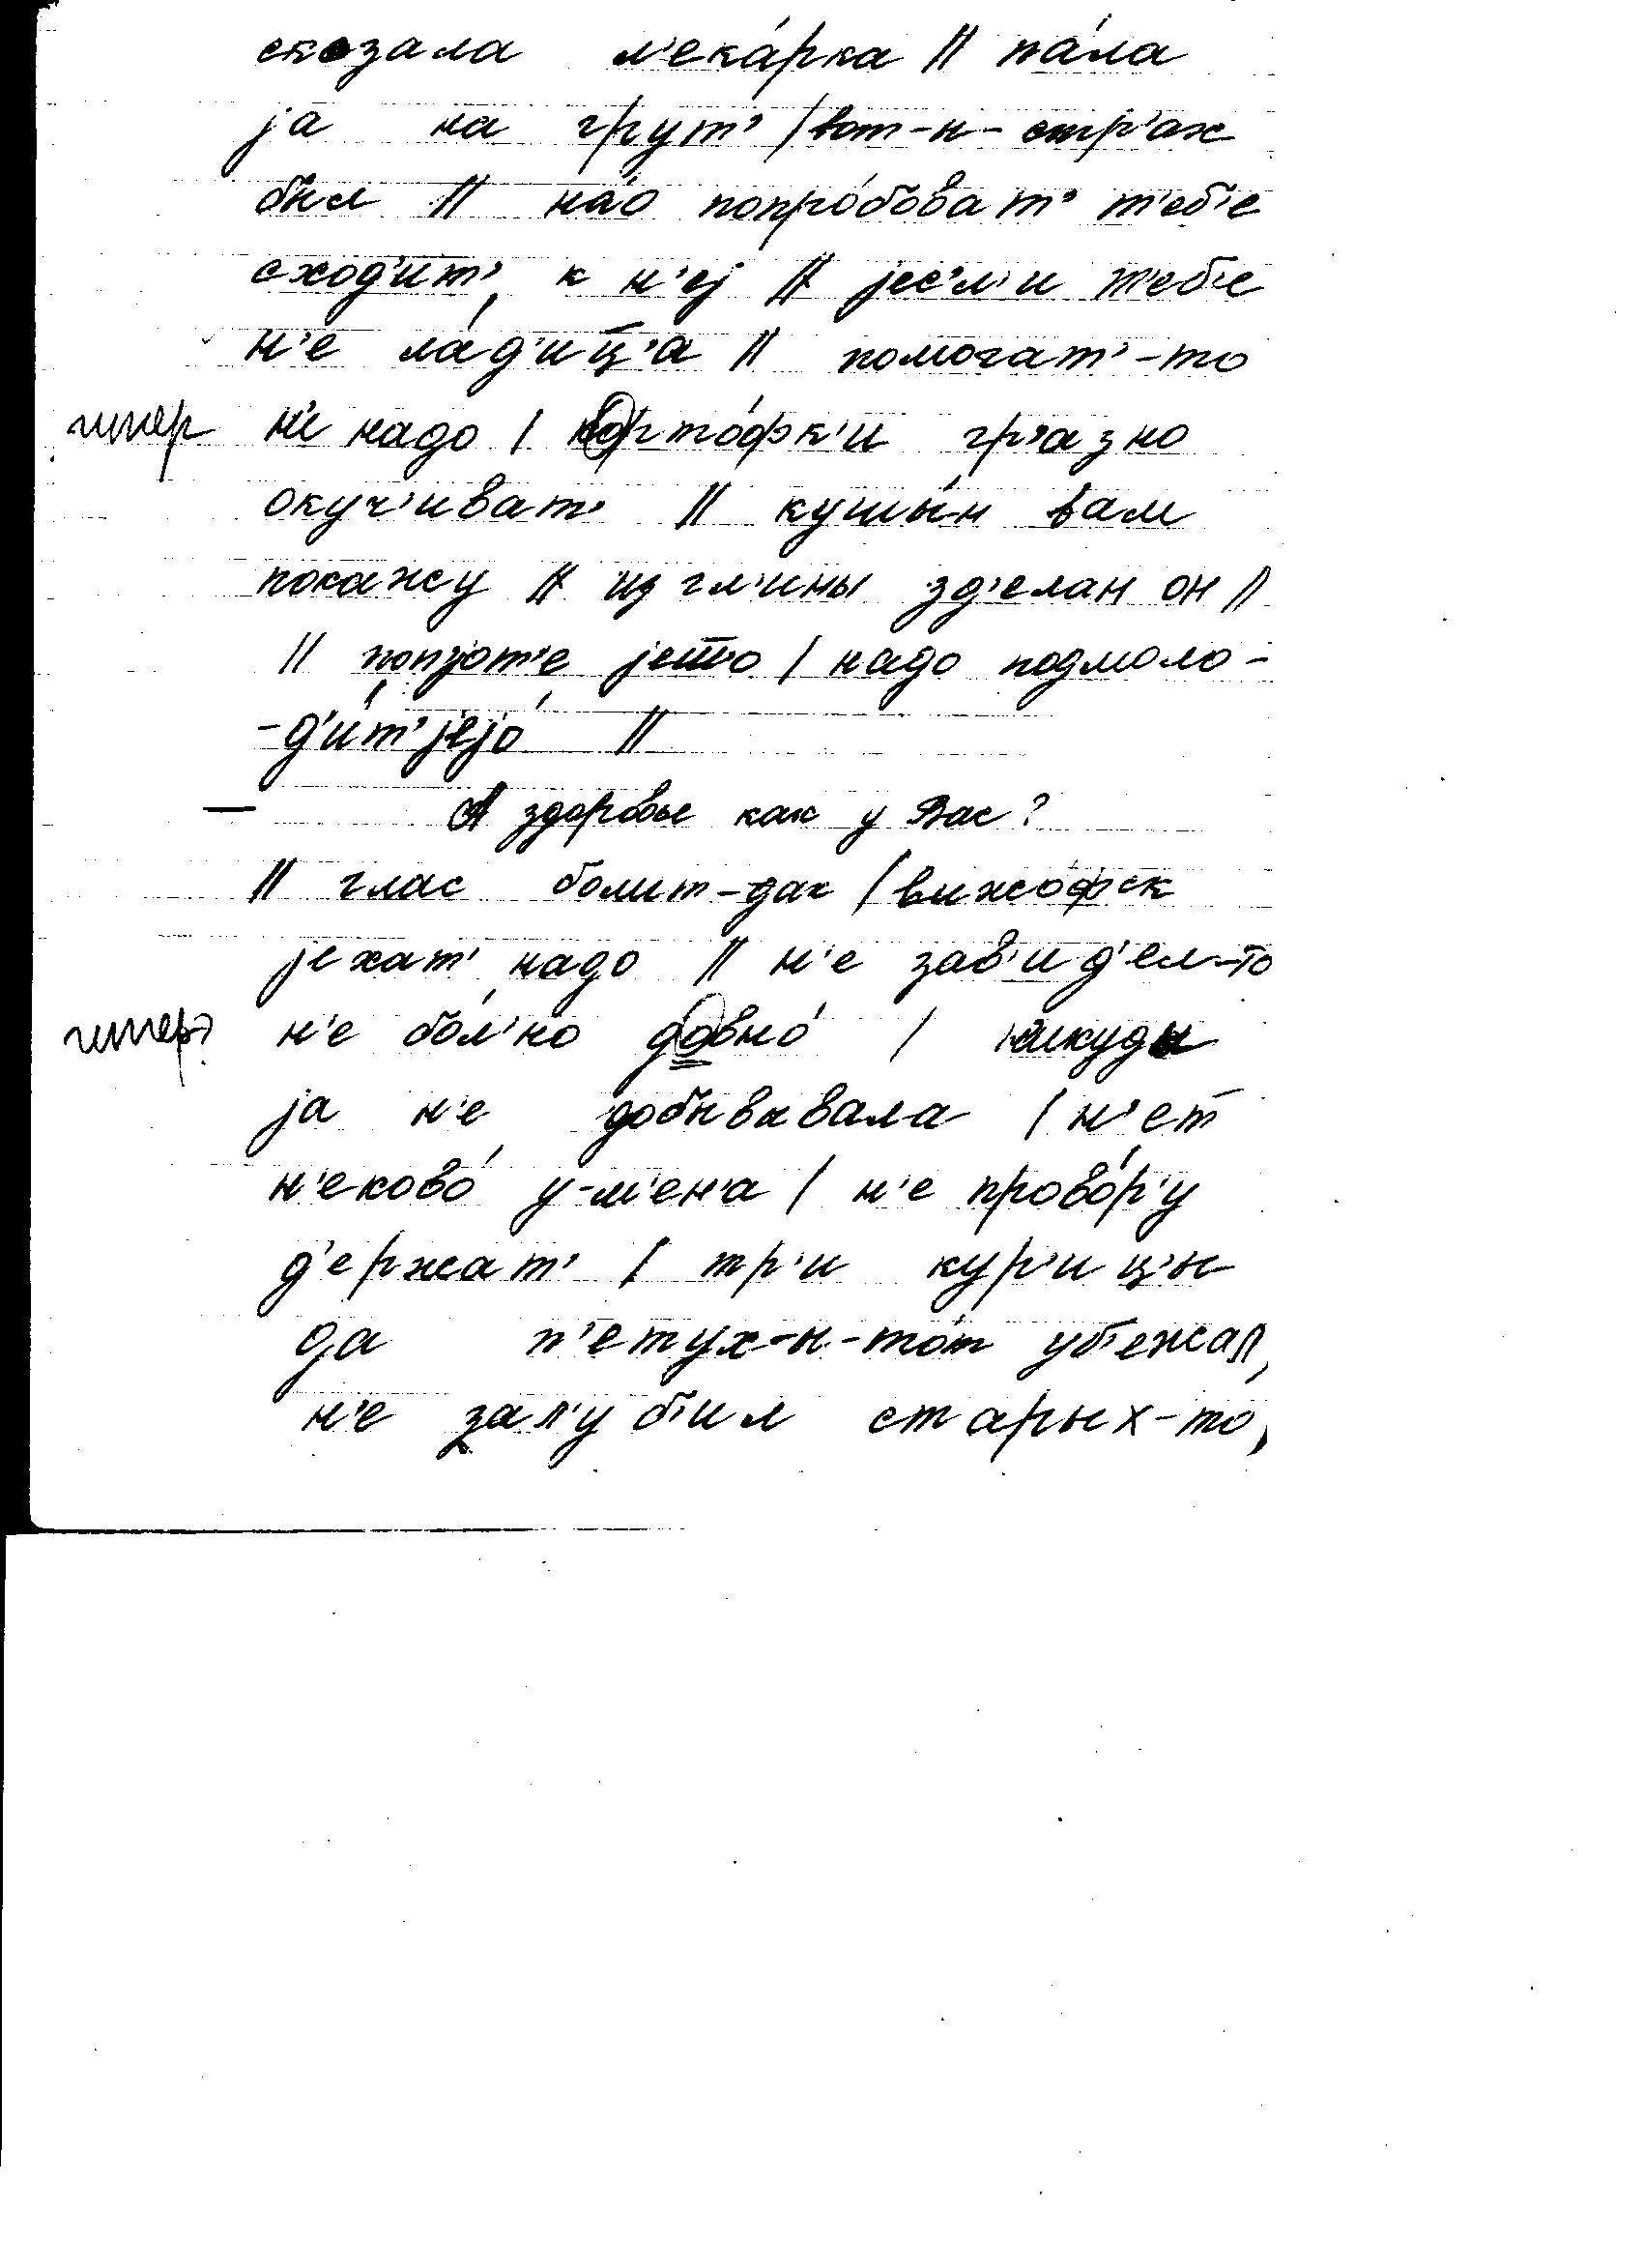 сказала л'ека́рка // па́ла
ја на грут' / вот-н- стр'аж
был // на́о попро́боват' т'еб'е
сход'ит' к н'еј // јес'л'и т'еб'е
н'е ла́д'иц̄'а // помогат'-то
гипер н'е надо / корто́фк'и гр'азно
окуч'иват' // кушы́н вам
покажу // из гл'ины зд'елан он //
// надо подмоло-
-д'и́т' јејо́ //
— А здоровье как у Вас?
// глас болит-дак / вижо́фск
јехат' надо // н'е зав'ид'ел-то
гипер? н'е бол'но довно́ / никуды
ја н'е добывывала / н'ет
н'еково́ у-м'ен'а / н'е прово́р'у
д'ержат' / тр'и кур'иц'ы
да п'етух-н-то́т уб'ежал,
н'е зал'уб'ил старых-то,